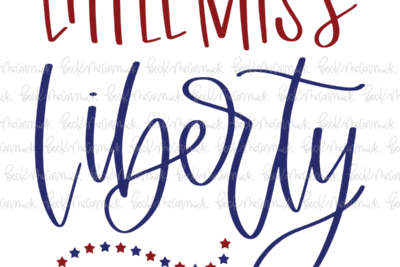 LITTLE MISS
liberty